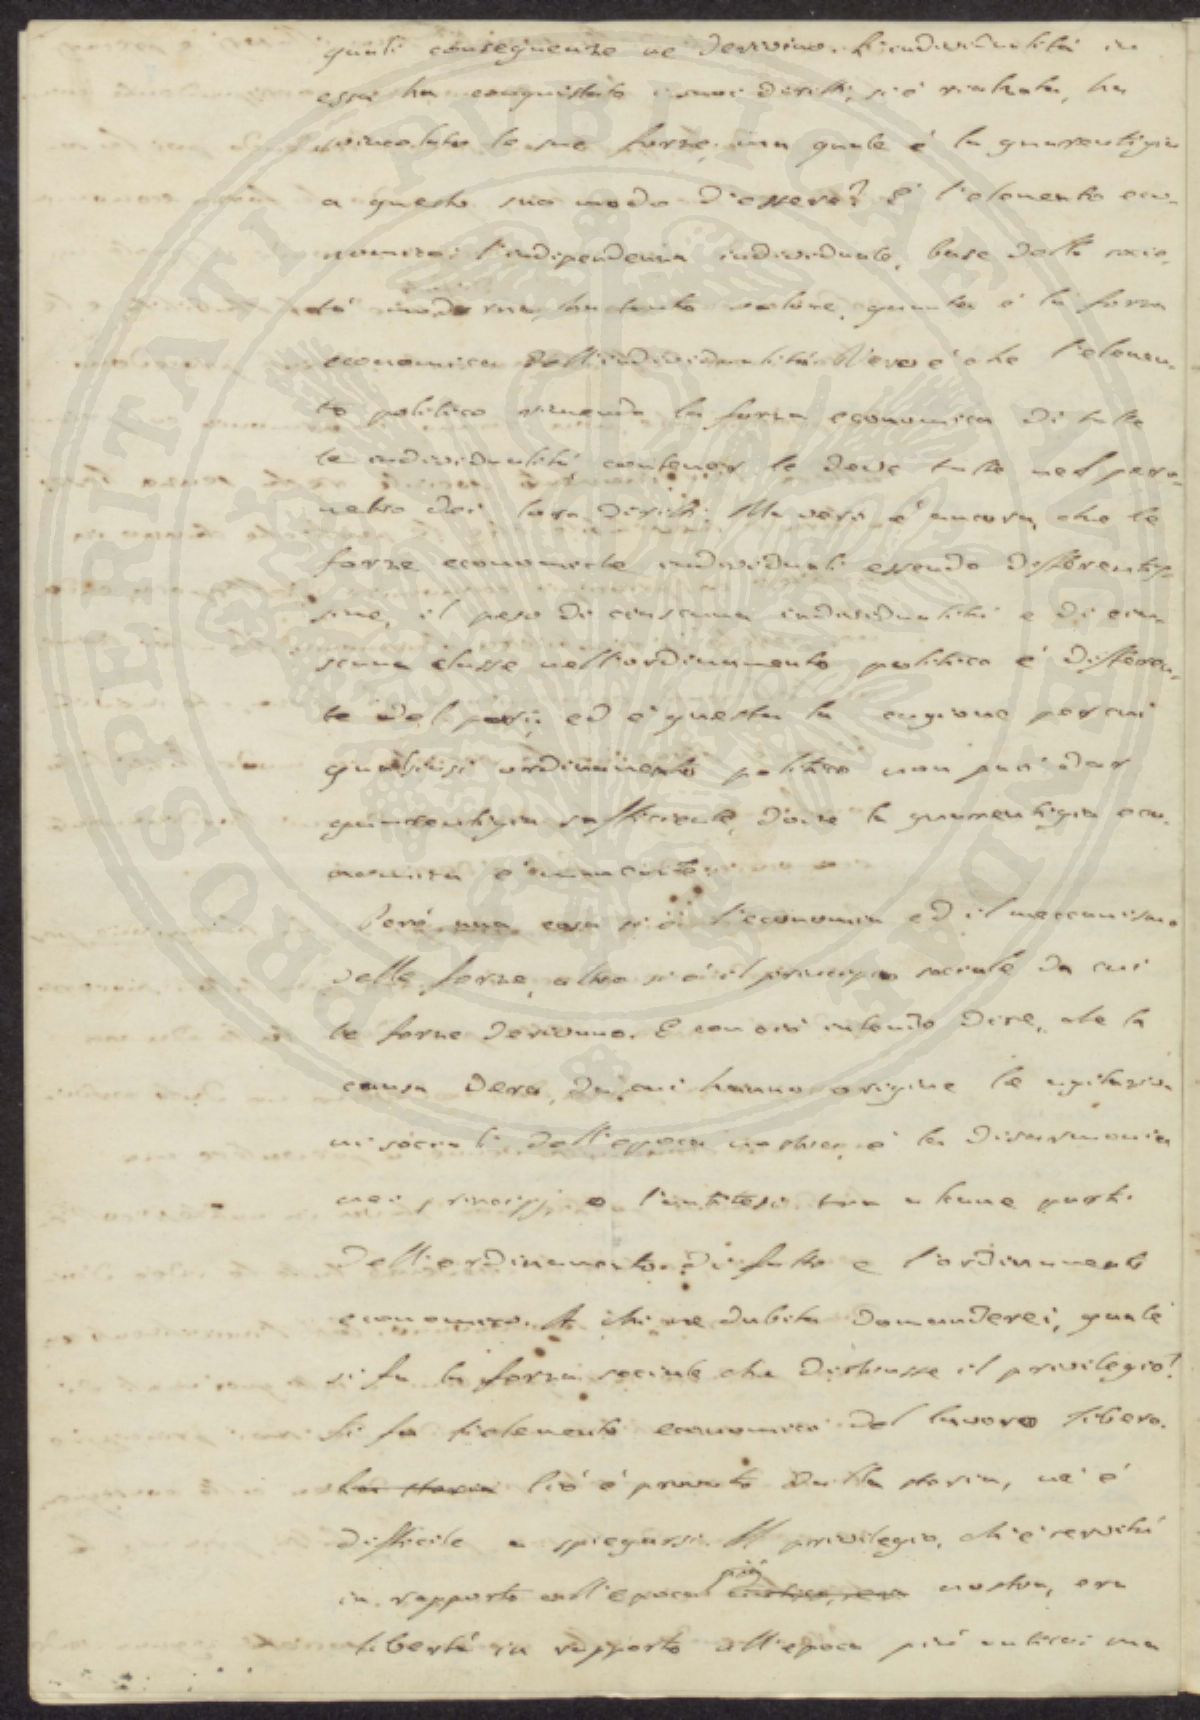 quali conseguenze ne derivino. L'individualità in
essa ha conquistato i suoi diritti, si è rialzata, ha
svincolato le sue forze; ma quale è la guarentigia
a questo suo modo d'essere? È l'elemento eco-
nomico: l'indipendenza individuale, base della socie-
tà moderna, ha tanto valore, quanta è la forza
economica dell'individualità. Vero è che l'elemen-
to politico riunendo la forza economica di tutte
le individualità, contener le deve tutte nel peri-
metro dei loro diritti. Ma vero è ancora, che le
forze economiche individuali essendo differentis-
sime, il peso di ciascuna individualità e di cia-
scuna classe nell'ordinamento politico è differen-
te del pari; ed è questa la cagione per cui
qualsisi ordinamento politico non può dar
guarentigia sufficiente, dove la guarentigia eco-
nomica è mancante.
Però una cosa si è l'economia ed il meccanismo
delle forze, altro si è il principio sociale da cui
le forze derivano. E con ciò intendo dire, che la
causa vera, da cui hanno origine le agitazio-
ni sociali dell'epoca nostra, è la disarmonia
nei principj, o l'antitesi tra alcune parti
dell'ordinamento di fatto e l'ordinamento
economico. A chi ne dubita domanderei, quale
si fu la forza sociale che distrusse il privilegio?
Si fu l'elemento economico del lavoro libero.
La storia Ciò è provato dalla storia, nè è
difficile a spiegarsi. Il privilegio, ch'è servitù
in rapporto all'epoca più nostra, era
libertà in rapporto all'epoca più antica; ma